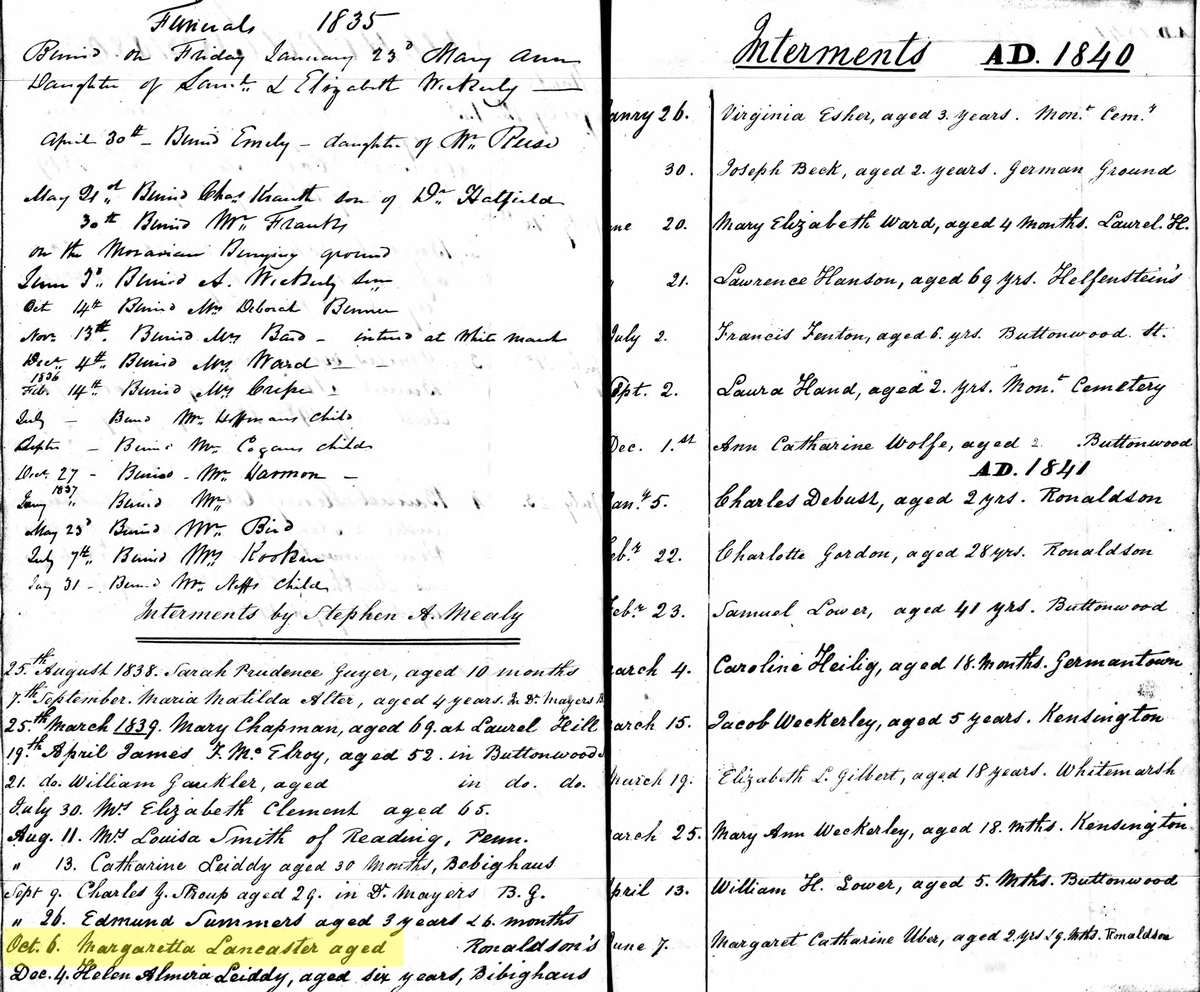 Funerals 1835
Buried on Friday January 23d Mary Ann
Daughter of Saml. & Elizabeth Weckerly
April 30th - Buried Emely - daughter of Wm. Reese
May 21st Buried Chas Krauth son of Dr. Hatfield
30th Buried Mr. Franks
on the Moravian Burying ground
June 3d Buried A. Weckerly
Oct 14th Buried Mrs Deborah Benner
Nov. 13th. Buried Mrs Bard - intered at White marsh
Decr. 4th. Buried Mrs Ward
1836
Feb. 14th Buried Mrs Cripe
July - Buried Mr. Hoffmans Child
Septr - Buried Mr. Cogans child
Decr. 27 - Buried - Mr. Harmon -
1837
Jany " Buried Mr
May 23d Buried Mr. Bird
July 7th " Buried Mrs Kooken
Jany 31 - Buried Mr. Neffs Child
Interments by Stephen A. Mealy
25.th August 1838. Sarah Prudence Guyer, aged 10 months
7.th September. Maria Matilda Alter, aged 4 years. In Dr. Mayers B
25th March 1839. Mary Chapman, aged 69. at Laurel Hill
19.th April James F. Mc Elroy, aged 52. in Buttonwood S
21. do. William Gaukler, aged in do. do.
July 30. Mrs Elizabeth Clement aged 65.
Aug. 11. Mrs Louisa Smith of Reading, Penn.
" 13. Catharine Leiddy aged 30 Months, Bebighaus
Sept 9. Charles J. Stroup aged 29. in Dr. Mayers B. G.
" 26. Edmund Summers aged 3 years & 6. months
Oct. 6. Margaretta Lancaster aged Ronaldson's
Dec. 4. Helen Almira Leiddy, aged six years, Bibighaus
Interments AD. 1840
anry 26. Virginia Esher, aged 3. years. Mont. Cemy
30. Joseph Beck, aged 2. years. German Ground
ne 20. Mary Elizabeth Ward, aged 4 Months. Laurel. H.
" 21. Lawrence Hanson, aged 69 yrs. Helfenstein's
July 2. Francis Fenton, aged 6. yrs. Buttonwood St.
Sept. 2. Laura Hand, aged 2. yrs. Mont. Cemetery
Dec. 1.st Ann Catharine Wolfe, aged 2. Buttonwood
AD. 1841
Jany 5. Charles Debust, aged 2 yrs. Ronaldson
Febr. 22. Charlotte Gordon, aged 28 yrs. Ronaldson
Febr. 23. Samuel Lower, aged 41 yrs. Buttonwood
arch 4. Caroline Heilig, aged 18. Months. Germantown
arch 15. Jacob Weckerley, aged 5 years. Kensington
March 19. Elizabeth L. Gilbert, aged 18 years. Whitemarsh
arch 25. Mary Ann Weckerley, aged 18. mths. Kensington.
April 13. William H. Lower, aged 5. Mths. Buttonwood
June 7. Margaret Catharine Uber, aged 2. yrs & 9. Mths. Ronaldson